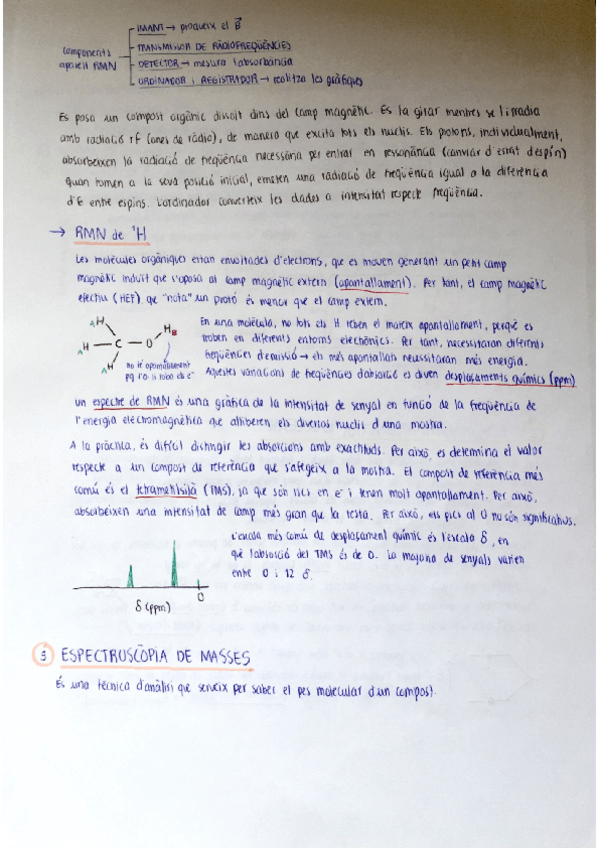 components
aparell RMN
IMANT → produeix el B⃗
TRANSMISSOR DE RADIOFREQÜÈNCIES
DETECTOR → mesura l'absorbància
ORDINADOR i REGISTRADOR → realitza les gràfiques
Es posa un compost orgànic dissolt dins del camp magnètic. Es fa girar mentres se l'irradia
amb radiació rf (ones de ràdio), de manera que excita tots els nuclis. Els protons, individualment,
absorbeixen la radiació de freqüència necessària per entrar en ressonància (canviar d'estat d'espín)
quan tornen a la seva posició inicial, emeten una radiació de freqüència igual a la diferència
d'E entre espins. L'ordinador converteix les dades a intensitat respecte freqüència.
→ RMN de ¹H
Les molècules orgàniques estan envoltades d'electrons, que es mouen generant un petit camp
magnètic induït que s'oposa al camp magnètic extern (apantallament). Per tant, el camp magnètic
efectiu (HEF) que "nota" un protó és menor que el camp extern.
En una molècula, no tots els H reben el mateix apantallament, perquè es
troben en diferents entorns electrònics. Per tant, necessitaran diferents
freqüències d'emissió → els més apantallats necessitaran més energia.
Aquestes variacions de freqüències d'absorció es diuen desplaçaments químics (ppm)
A H
A H — C — O
A H
H B
no té apantallament
pq l'O li roba els e⁻
Un espectre de RMN és una gràfica de la intensitat de senyal en funció de la freqüència de
l'energia electromagnètica que alliberen els diversos nuclis d'una mostra.
A la pràctica, és difícil distingir les absorcions amb exactituds. Per això, es determina el valor
respecte a un compost de referència que s'afegeix a la mostra. El compost de referència més
comú és el tetrametilsilà (TMS), ja que són rics en e⁻ i tenen molt apantallament. Per això,
absorbeixen una intensitat de camp més gran que la resta. Per això, els pics al 0 no són significatius.
L'escala més comú de desplaçament químic és l'escala δ, en
què l'absorció del TMS és de 0. La majoria de senyals varien
entre 0 i 12 δ.
0
δ (ppm)
3 ESPECTROSCÒPIA DE MASSES
És una tècnica d'anàlisi que serveix per saber el pes molecular d'un compost.